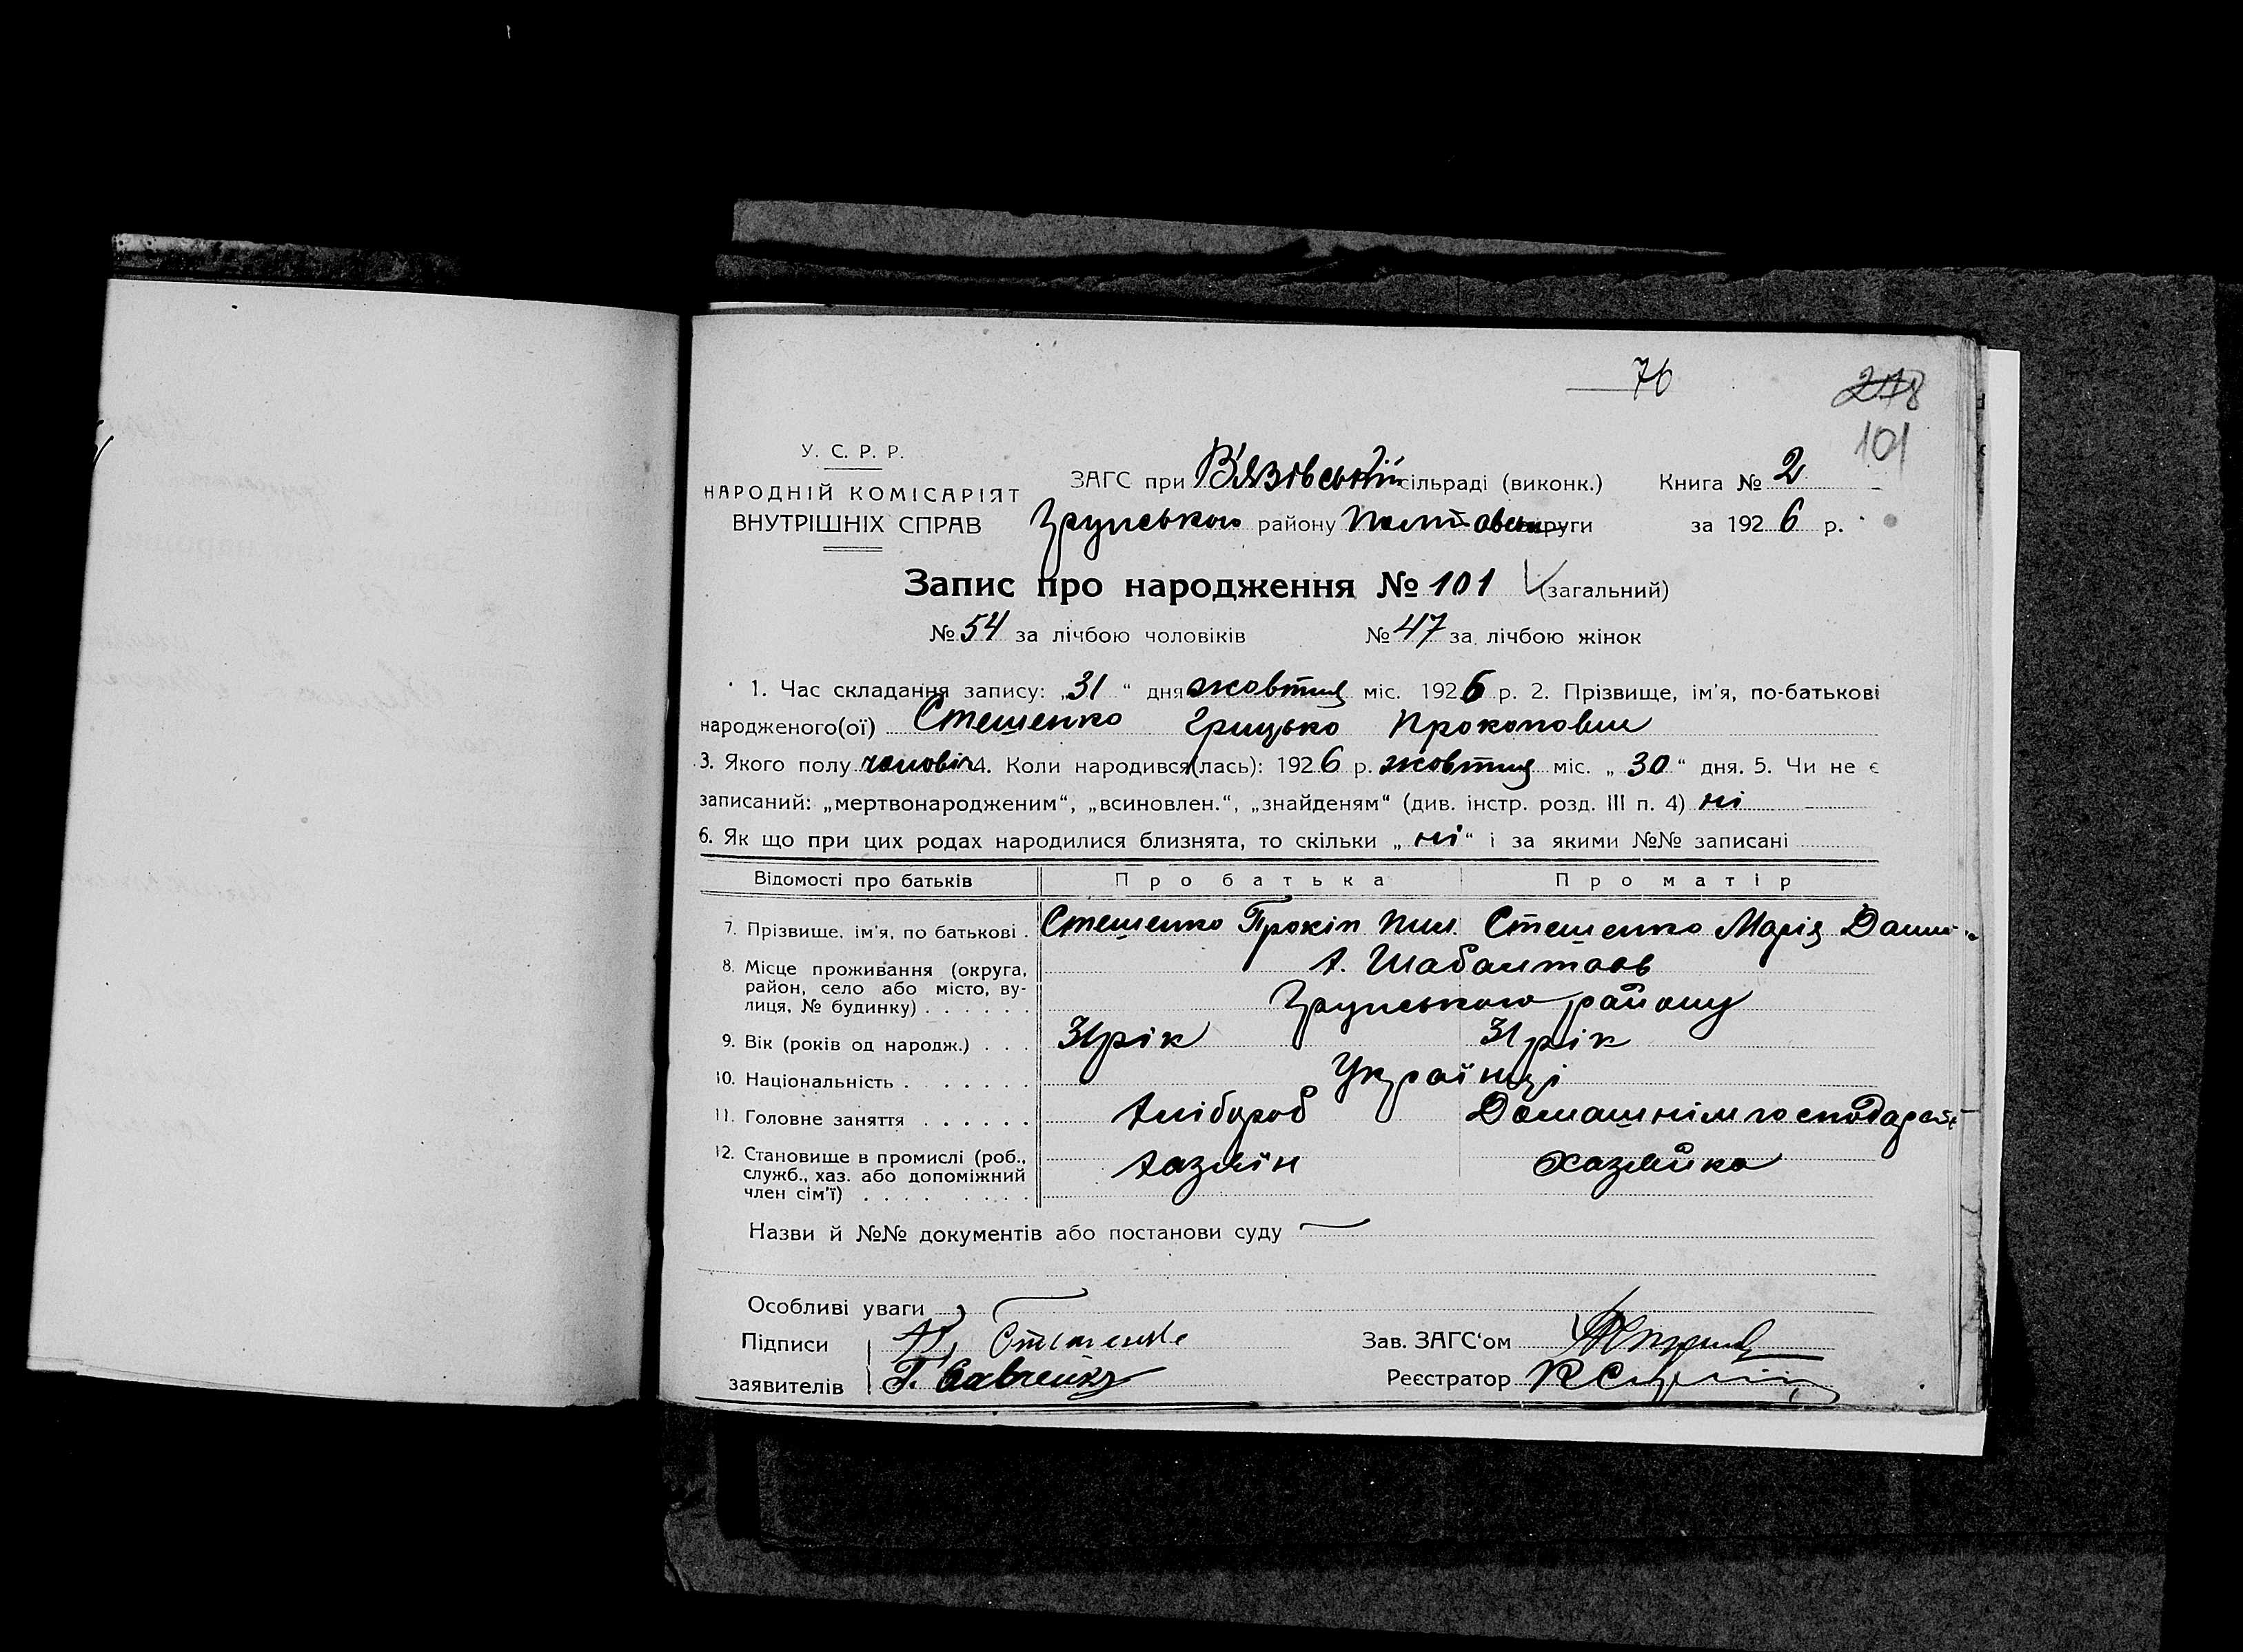 76
218
101
У. С. Р. Р.
НАРОДНІЙ КОМІСАРІЯТ
ВНУТРІШНІХ СПРАВ
ЗАГС при В'язівській сільраді (виконк.) Книга № 2
Грунського району Полтавськ округи за 1926 р.
Запис про народження № 101 (загальний)
№ 54 за лічбою чоловіків № 47 за лічбою жінок
1. Час складання запису: „31“ дня жовтня міс. 1926 р. 2. Прізвище, ім'я, по-батькові
народженого(ої) Стешенко Грицько Прокопович
3. Якого полу чоловіч 4. Коли народився(лась): 1926 р. жовтня міс. „30“ дня. 5. Чи не є
записаний: „мертвонародженим“, „всиновлен.“, „знайденям“ (див. інстр. розд. III п. 4) ні
6. Як що при цих родах народилися близнята, то скільки „ні“ і за якими №№ записані
Відомості про батьків Про батька Про матір
7. Прізвище, ім'я, по батькові . Стешенко Прокіп Пил. Стешенко Марія
8. Місце проживання (округа,
район, село або місто, ву-
лиця, № будинку) . . . . . .
Грунського району
9. Вік (років од народж.) . . . 31 рік 31 рік
10. Національність . . . . . . . Українці
11. Головне заняття . . . . . . Хлібороб Домашнім господарст
12. Становище в промислі (роб.,
служб., хаз. або допоміжний
член сім'ї) . . . . . . . .
Хазяїн Хазяйка
Назви й №№ документів або постанови суду
Особливі уваги
Підписи Стешенко Зав. ЗАГС'ом
заявителів Г. Савченко Реєстратор